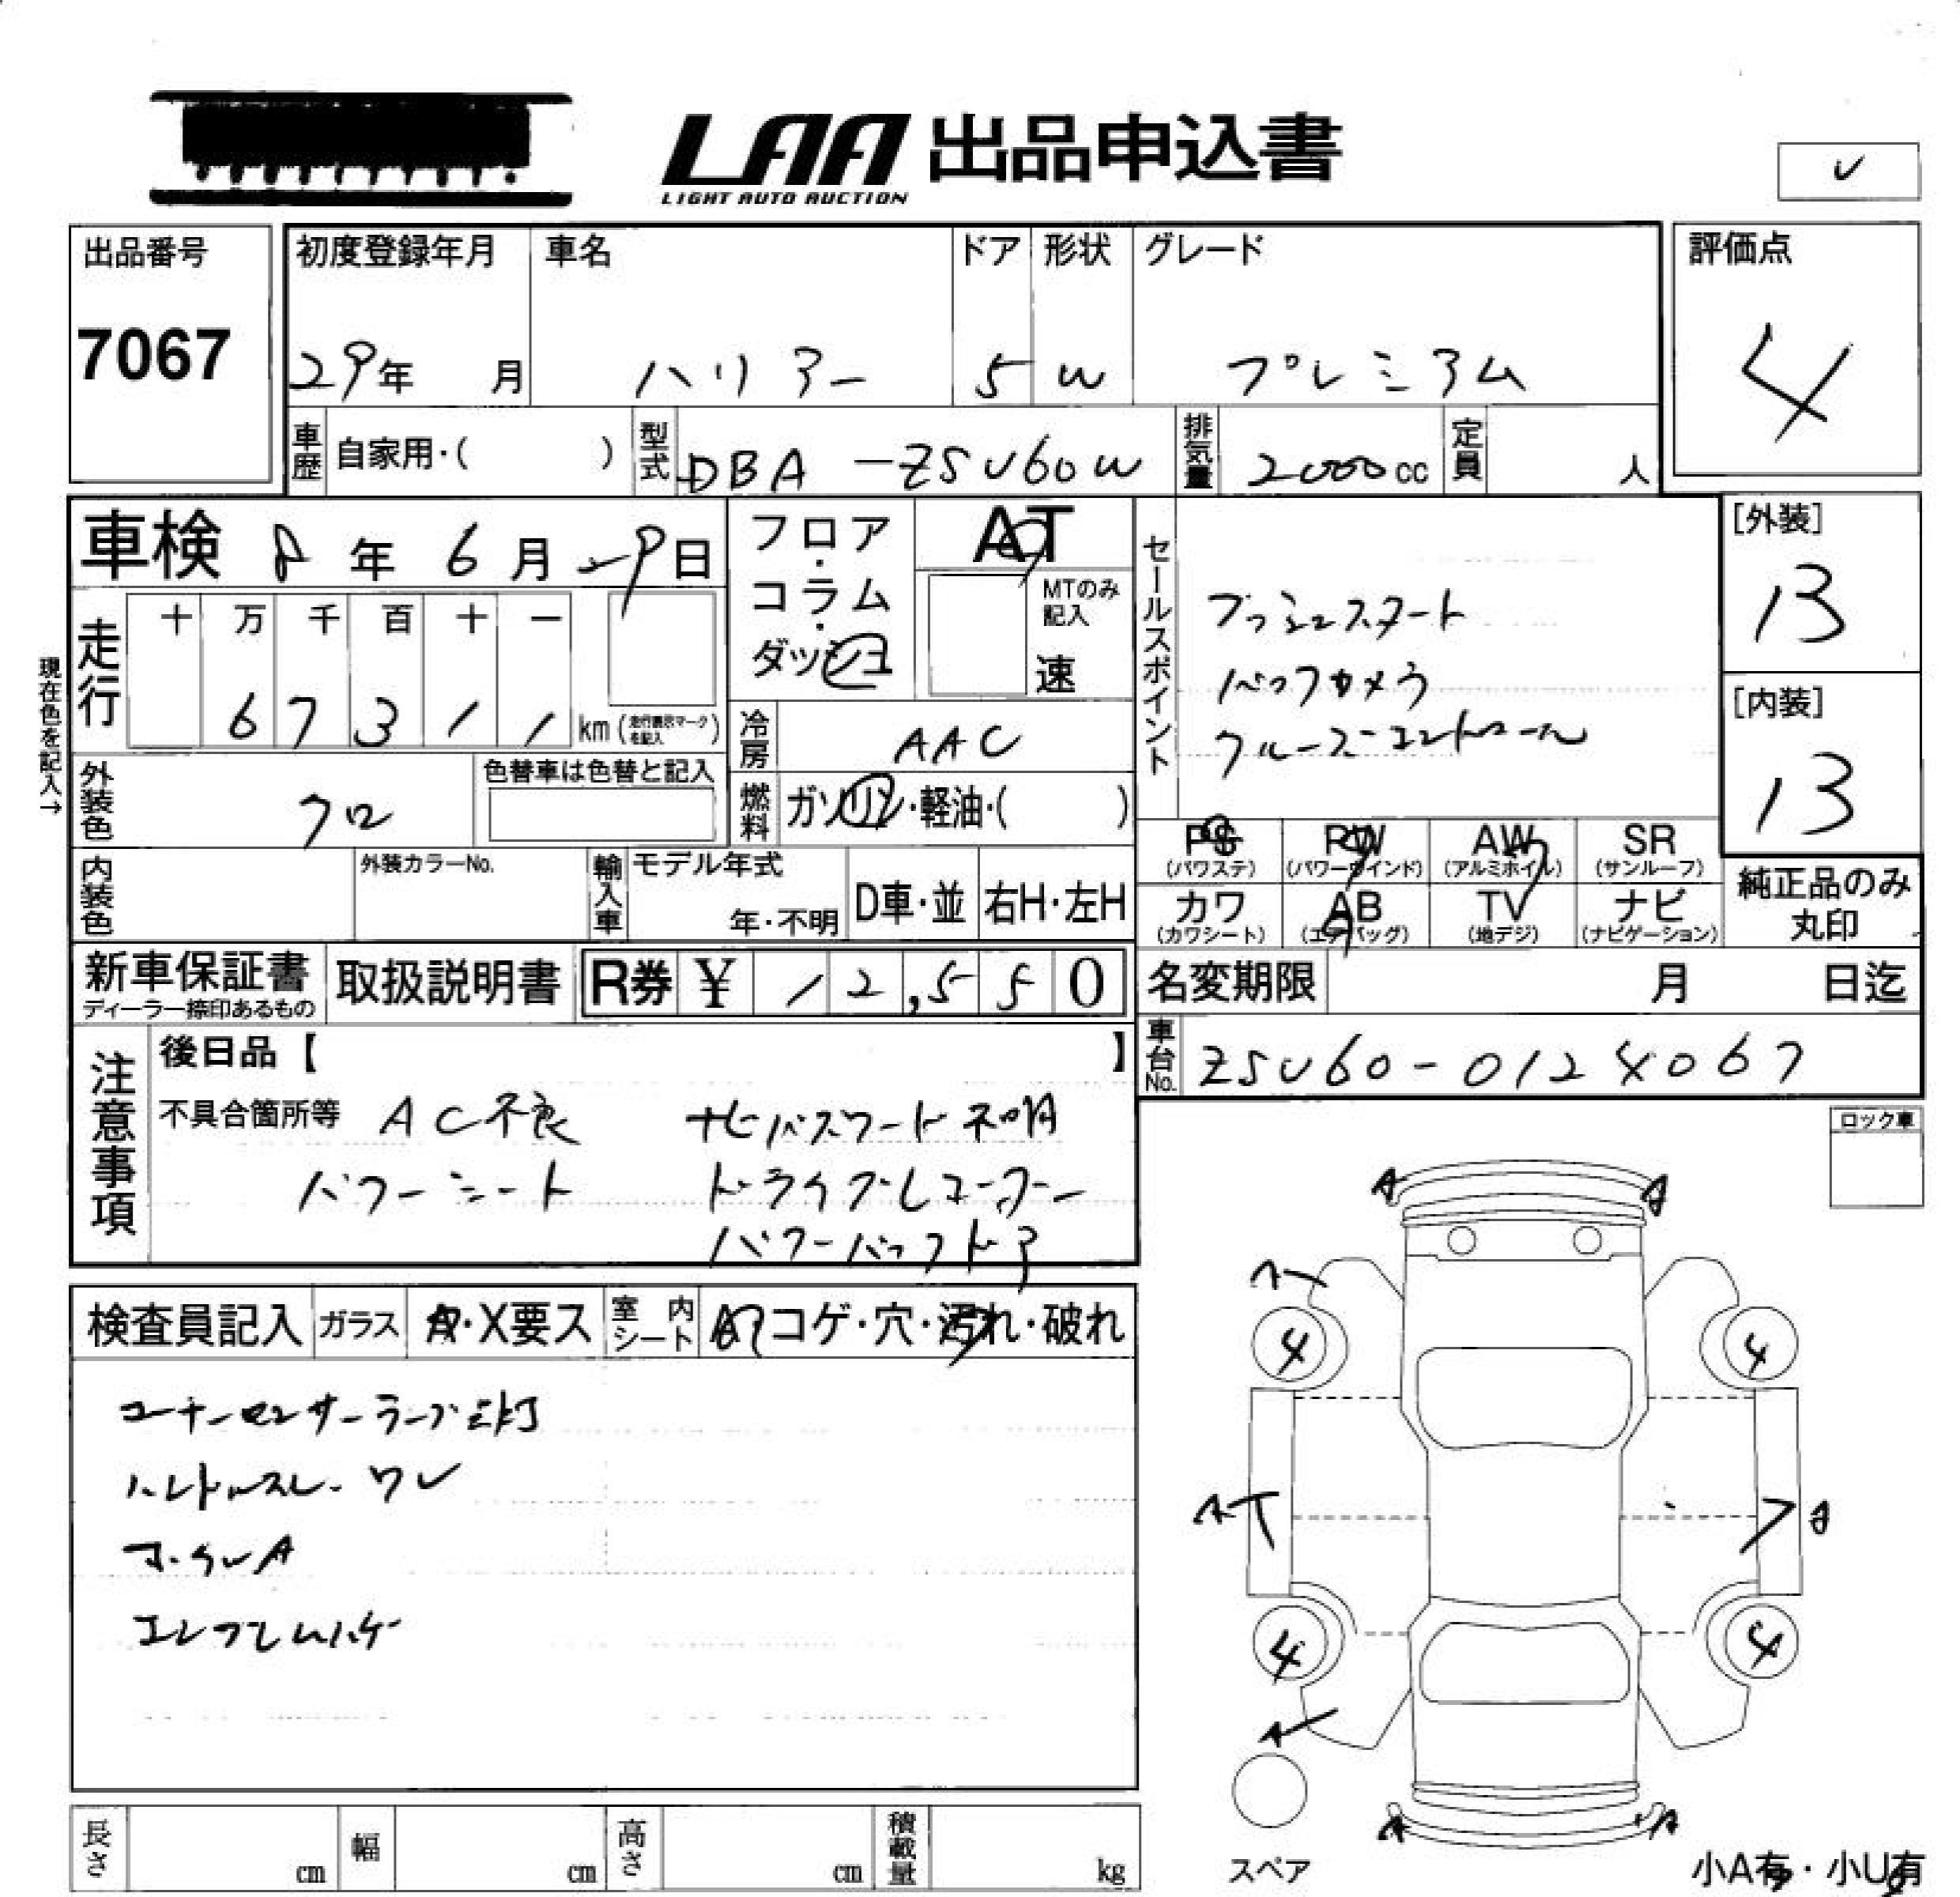 LAA 出品申込書
LIGHT AUTO AUCTION
出品番号 初度登録年月 車名 ドア 形状 グレード 評価点
7067 29年 月 ハリアー 5 W プレミアム 4
車歴 自家用・( ) 型式 DBA-ZSU60W 排気量 2000cc 定員 人
車検 8年 6月 29日 フロア・コラム・ダッシュ AT セールスポイント [外装]
MTのみ記入 速 13
現在色を記入→
走行 十 万 千 百 十 一
6 7 3 1 1 km (走行表示マークを記入)
プッシュスタート
バックカメラ
クルーズコントロール
[内装]
13
冷房 AAC
外装色 クロ 色替車は色替と記入 燃料 ガソリン・軽油・( )
PS RW AW SR
(パワステ) (パワーウインド) (アルミホイル) (サンルーフ)
内装色 外装カラーNo. 輸入車 モデル年式 年・不明 D車・並 右H・左H
カワ AB TV ナビ
(カワシート) (エアバッグ) (地デジ) (ナビゲーション)
純正品のみ
丸印
新車保証書 取扱説明書 R券 ¥ 12,550 名変期限 月 日迄
ディーラー捺印あるもの
車台No. ZSU60-0124067
注意事項 後日品【 】
不具合箇所等 AC不良 ナビパスワード不明
パワーシート ドライブレコーダー
パワーバックドア
ロック車
検査員記入 ガラス A・X要ス 室内シート コゲ・穴・汚れ・破れ
コーナーセンサーランプ点灯
ハンドルスレ・ワレ
ホイルA
エンブレムハゲ
A A
A
4 4
A A
4 4
A
A A
スペア
小A有・小U有
長さ cm 幅 cm 高さ cm 積載量 kg